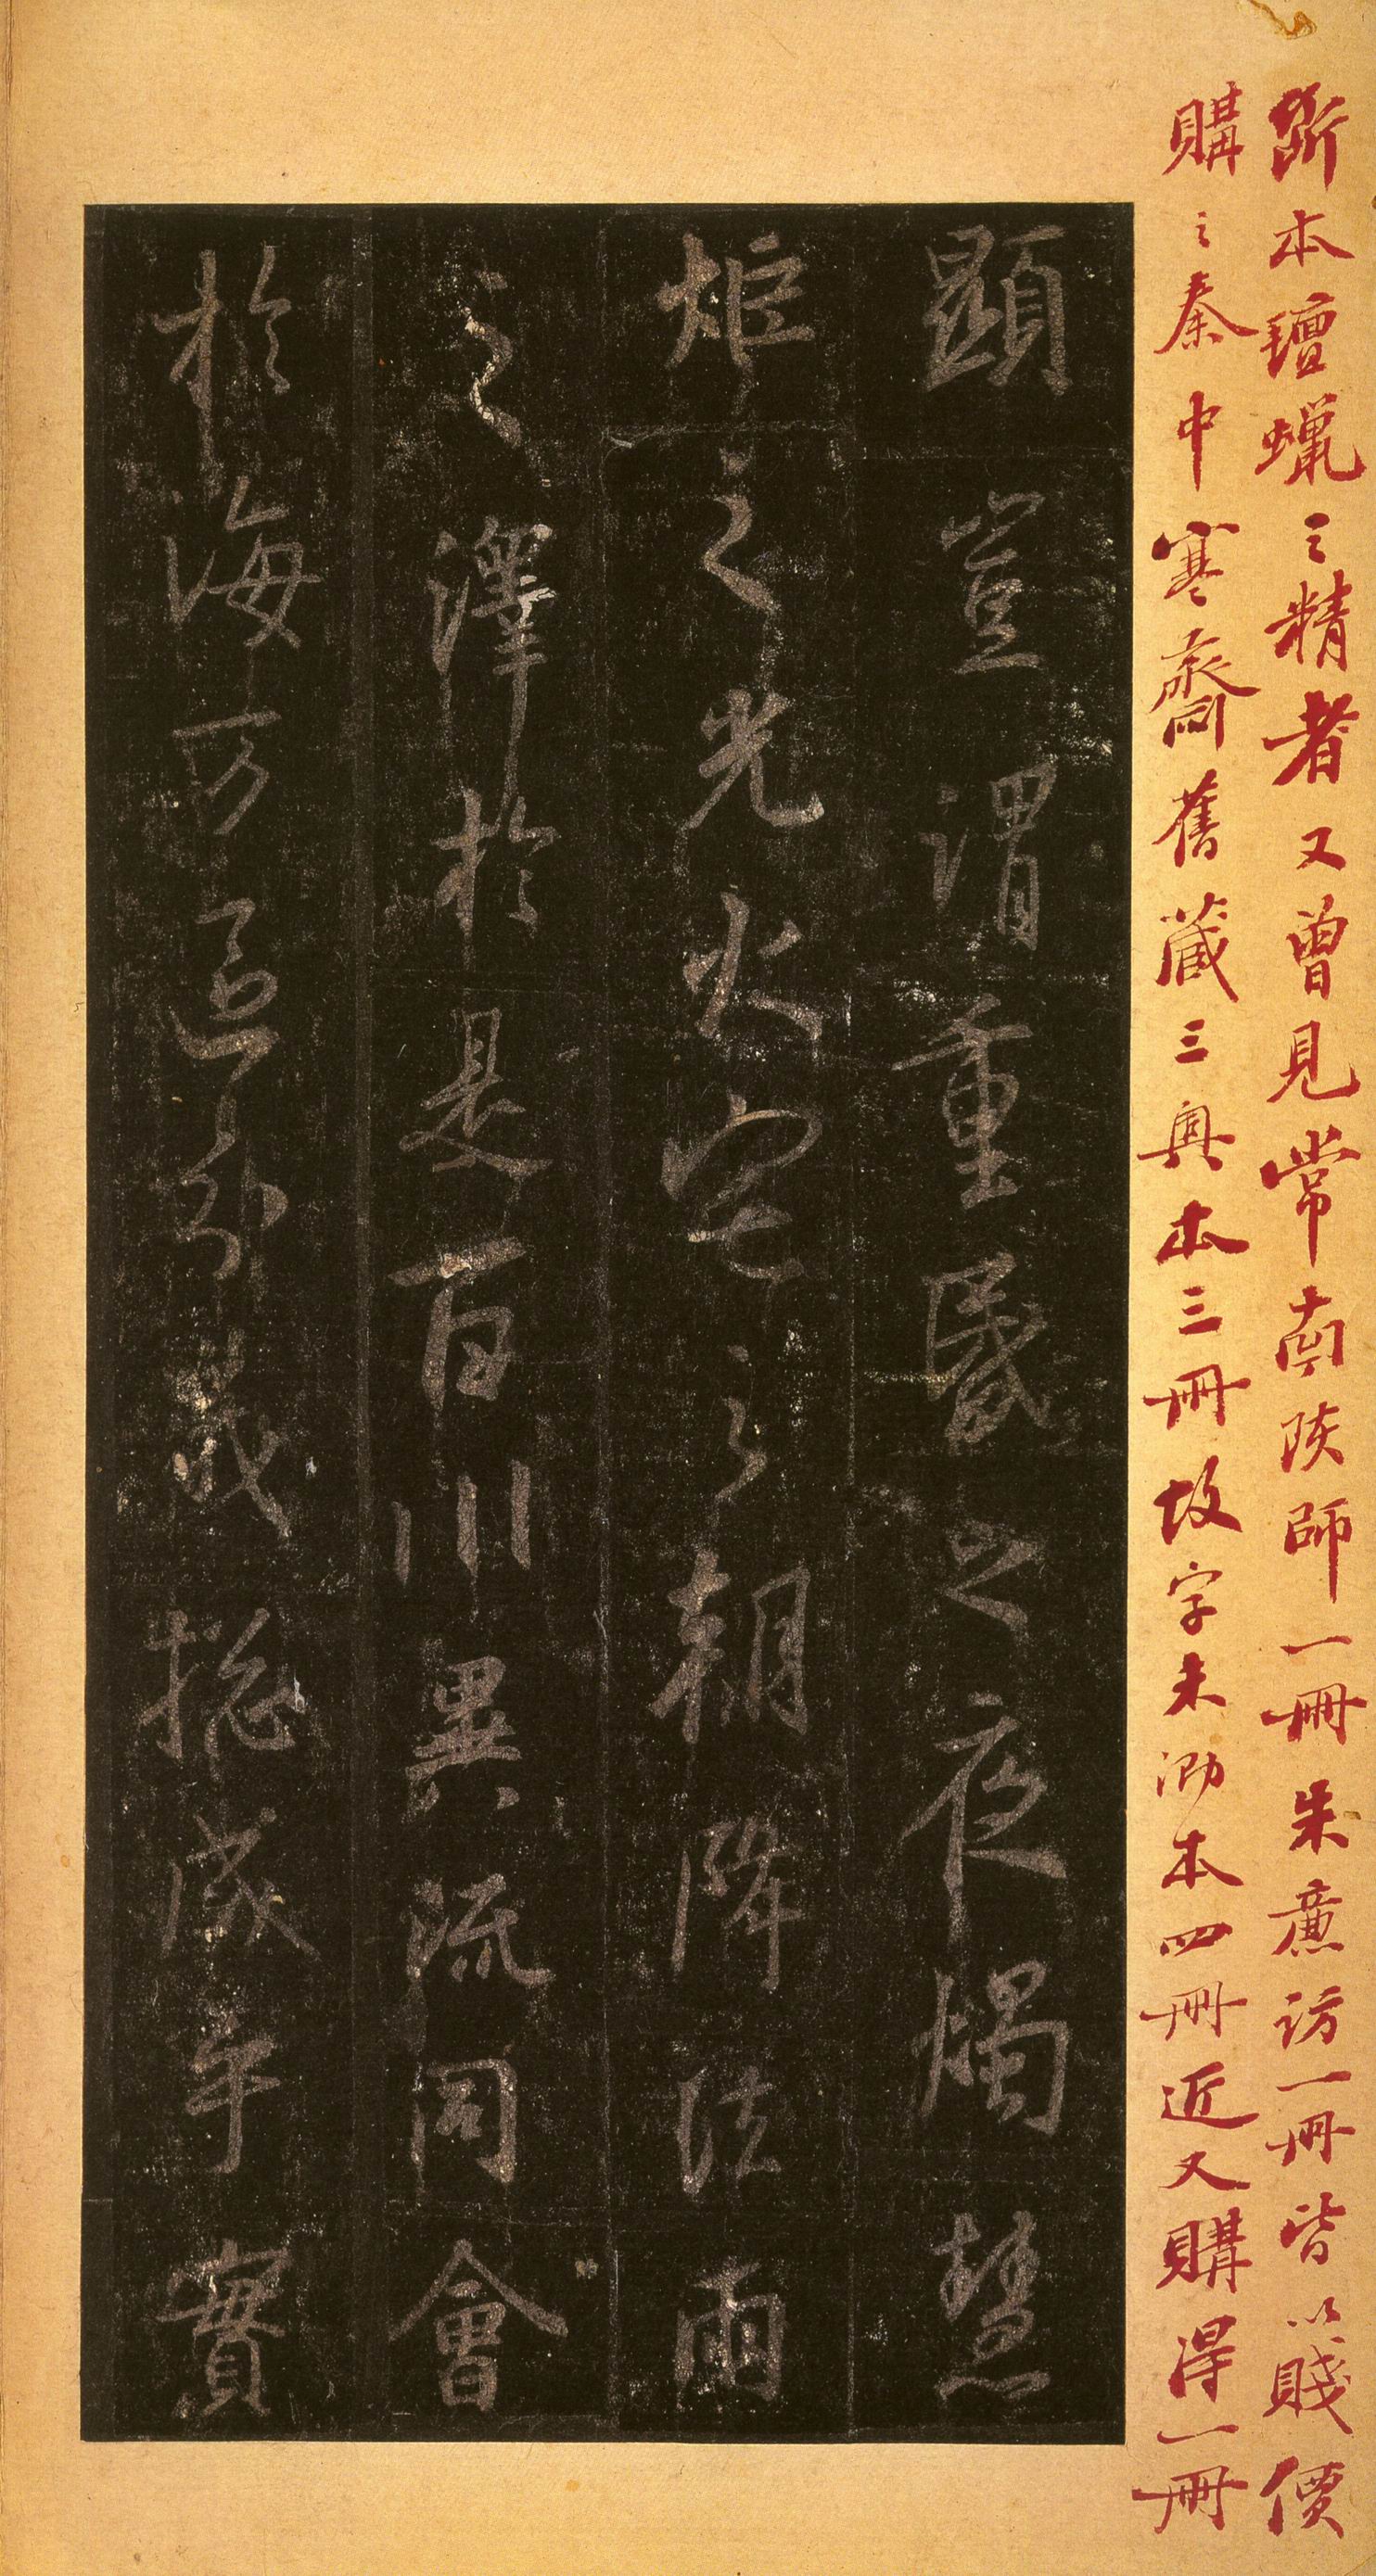 斷本氊蠟之精者又曾見常南陔師一冊朱訪一冊皆以賤價
購之秦中寒齋舊藏三奧本三冊故字未泐本四冊近又購得一冊
顯豈謂重昬之夜燭慧
炬之光火宅之朝降法雨
之澤於是百川異流同會
於海万區分義揔成乎實